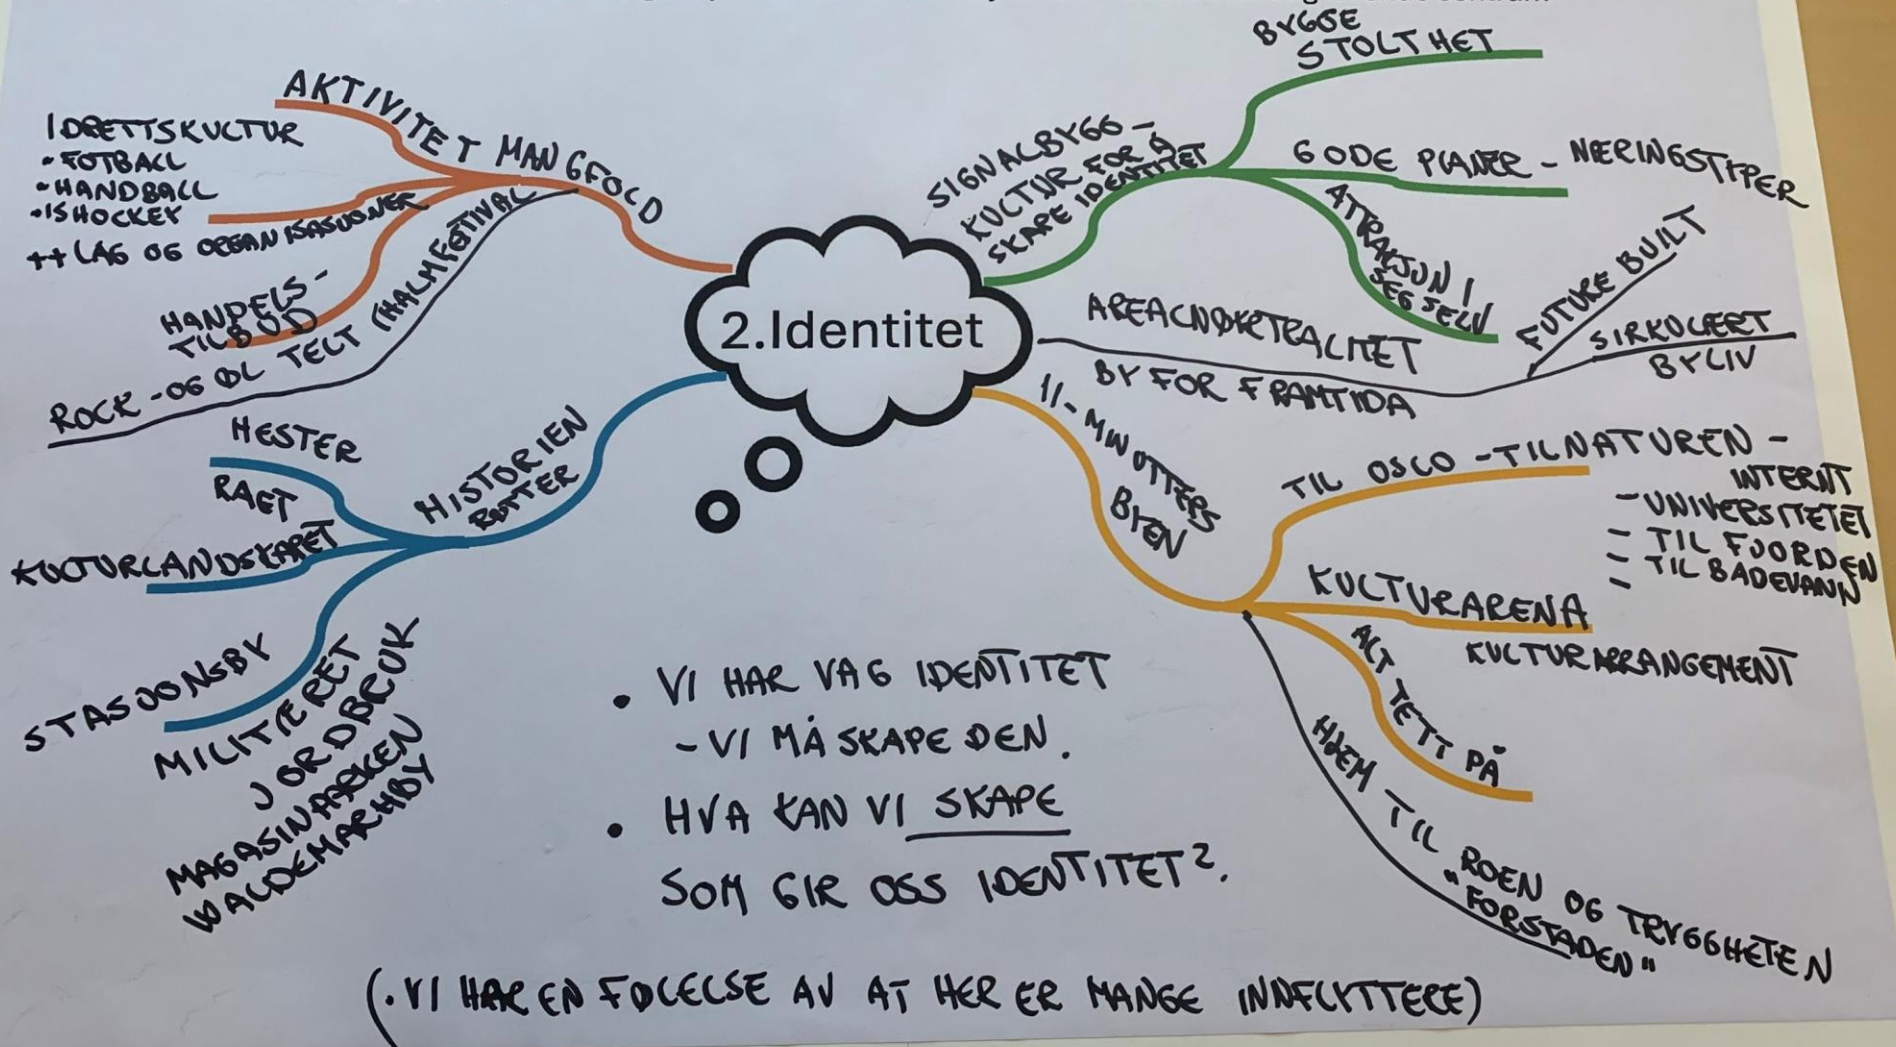 2.Identitet
AKTIVITET MANGFOLD
IDRETTSKULTUR
• FOTBALL
• HANDBALL
• ISHOCKEY
++ LAG OG ORGANISASJONER
HANDELS-
TILBUD
ROCK-OG ØL TELT (HALMFESTIVAL
HISTORIEN
RØTTER
HESTER
RAET
KULTURLANDSKAPET
STASJONSBY
MILITÆRET
JORDBRUK
MAGASINPARKEN
WALDEMARHØY
SIGNALBYGG -
KULTUR FOR Å
SKAPE IDENTITET
BYGGE
STOLTHET
GODE PLANER - NÆRINGSTYPER
ATTRAKSJON I
SEG SELV
AREALNØYTRALITET
BY FOR FRAMTIDA
FUTURE BUILT
SIRKULÆRT
BYLIV
11-MINUTTERS
BYEN
TIL OSLO - TIL NATUREN -
INTERNT
- UNIVERSITETET
- TIL FJORDEN
- TIL BADEVANN
-
KULTURARENA
KULTURARRANGEMENT
ALT TETT PÅ
HJEM TIL ROEN OG TRYGGHETEN
"FORSTADEN"
• VI HAR VAG IDENTITET
- VI MÅ SKAPE DEN.
• HVA KAN VI SKAPE
SOM GIR OSS IDENTITET?.
(• VI HAR EN FØLELSE AV AT HER ER MANGE INNFLYTTERE)